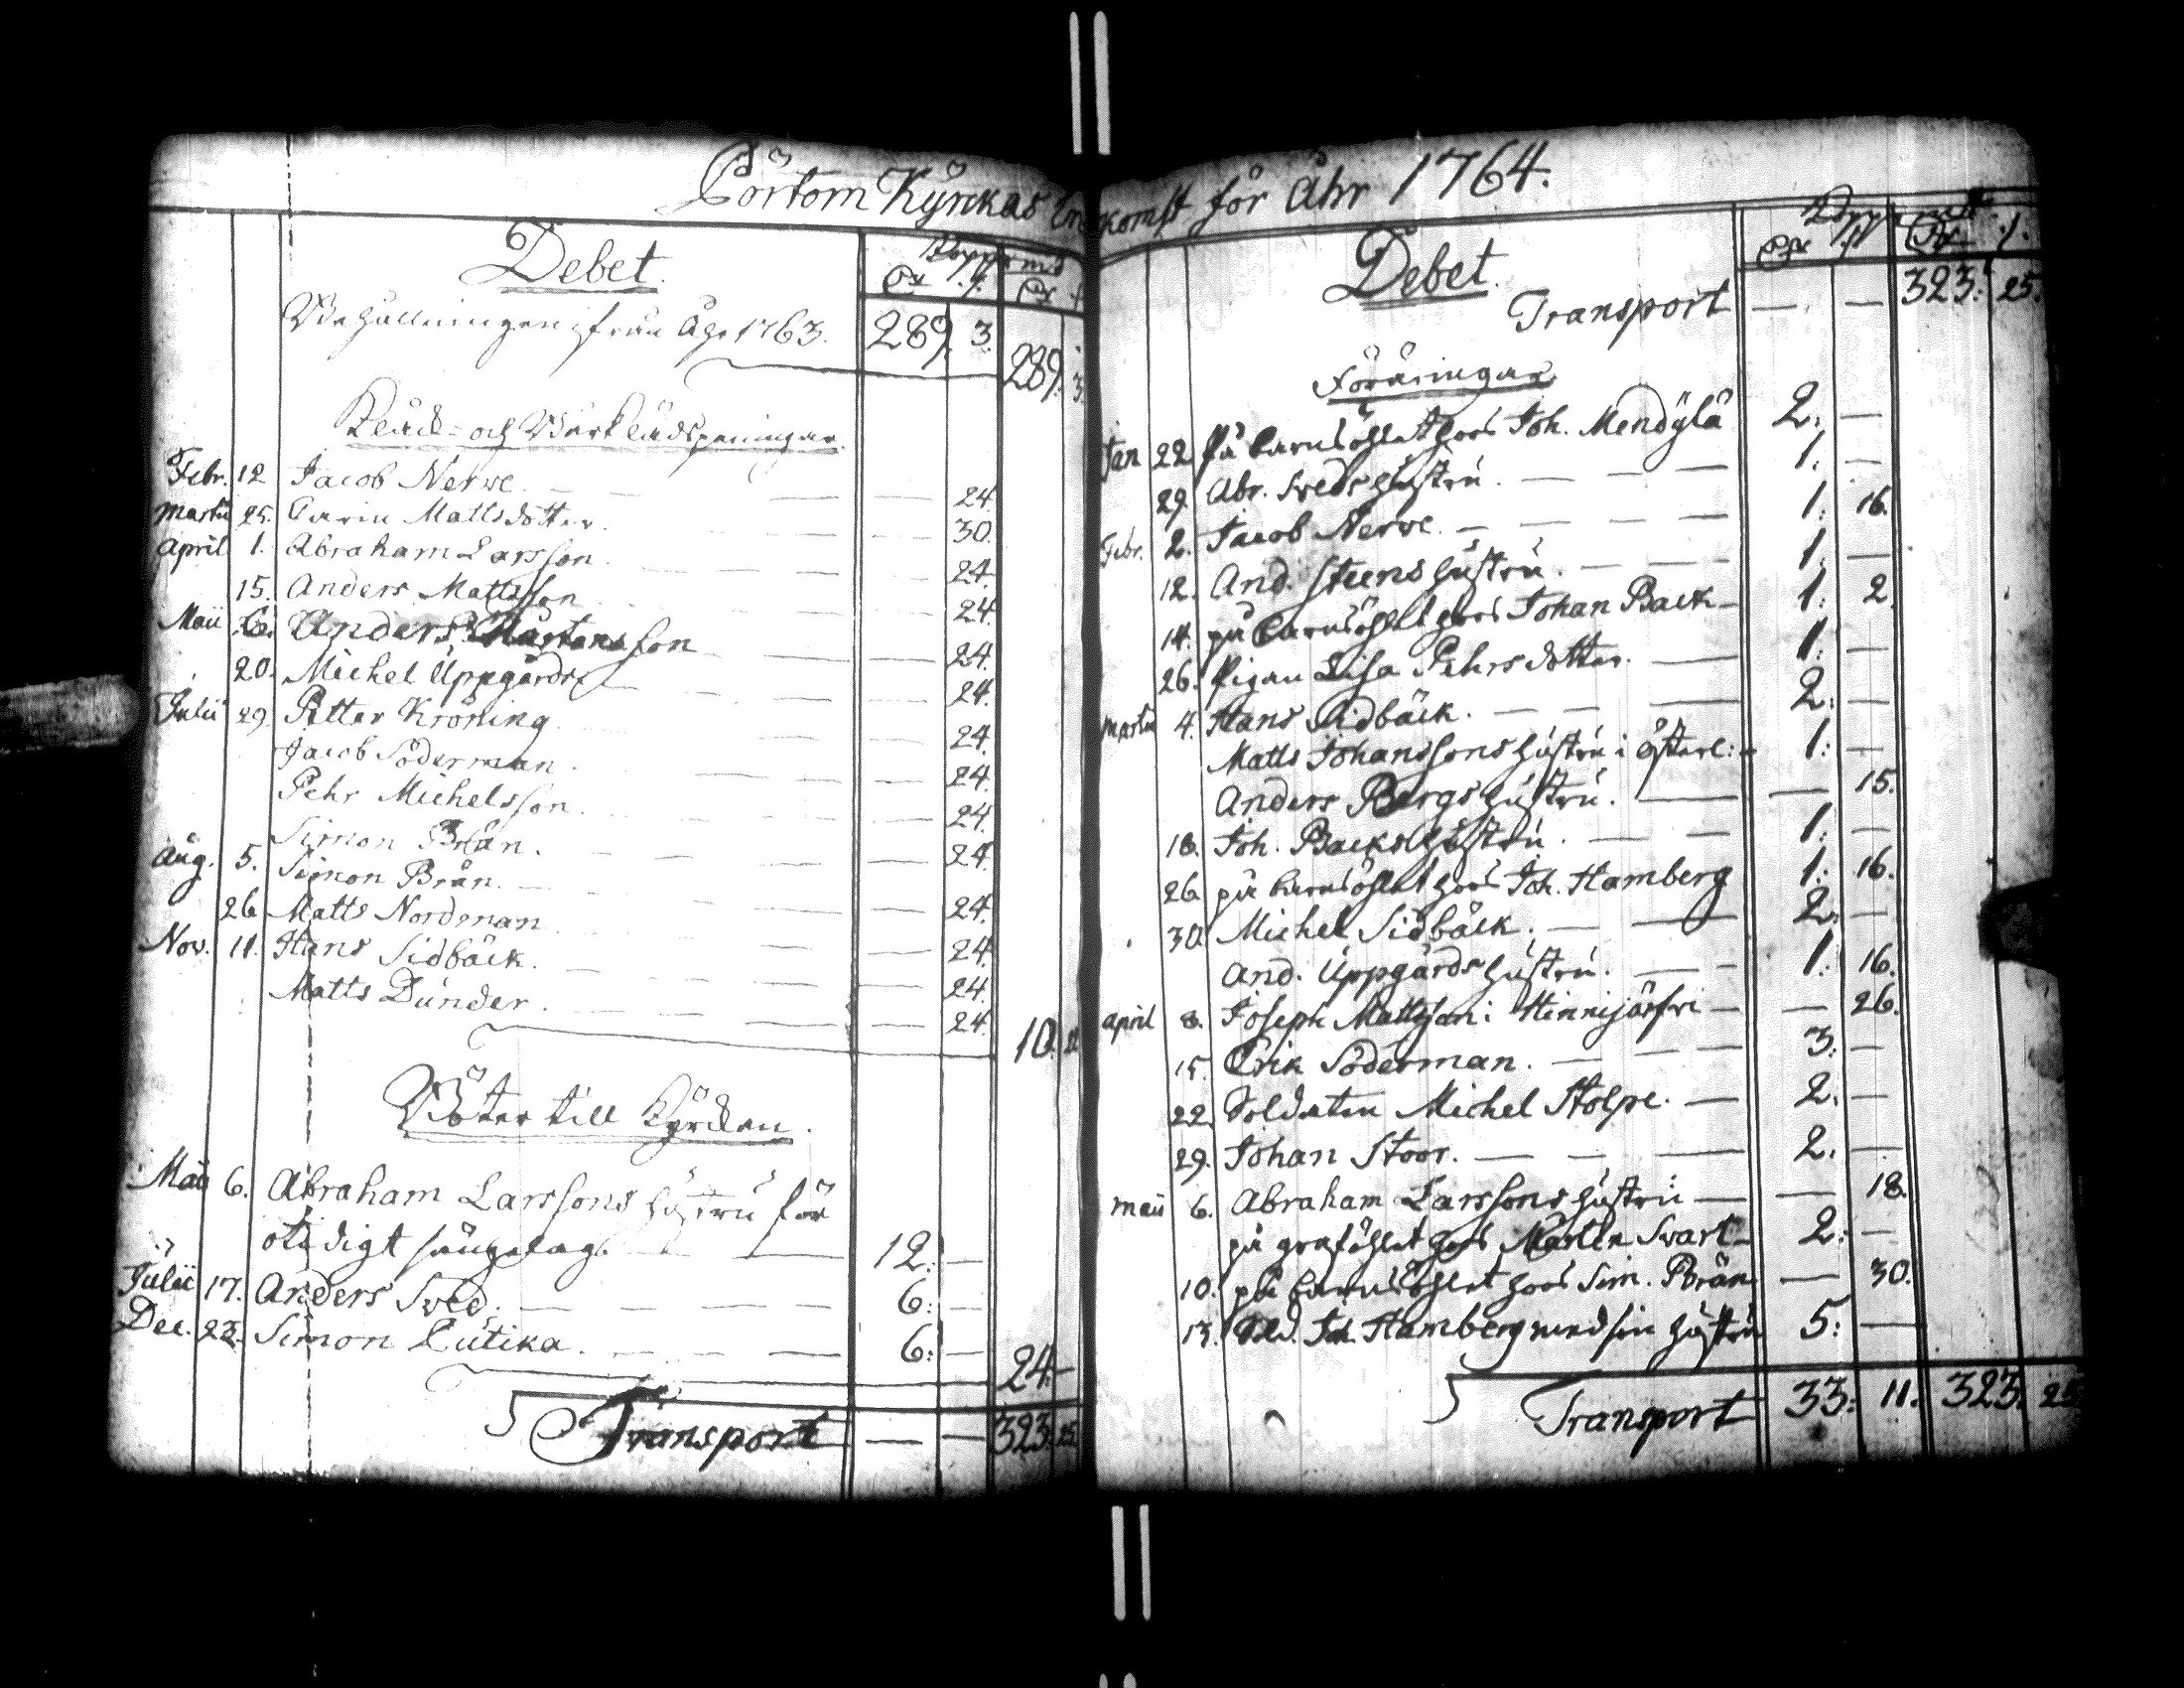 Pörtom Kyrkas Inkomst för Åhr 1764.
Debet.
Behållningen ifrån Åhr 1763. 289. 3.
289. 3.
Klåck- och Bårklädspenningar.
Febr. 12 Jacob Nerve. — — — 24.
Martii 25. Carin Mattsdotter. — — 30.
April 1. Abraham Larsson. — — — 24.
15. Anders Mattsson — — 24.
Maii 6. Anders Mårtensson — — 24.
20. Michel Uppgårds — — — 24.
Julii 29. Petter Kröning — — 24.
Jacob Söderman. — — 24.
Pehr Michelsson. — — 24.
Simon Brån. — — — 24.
Aug. 5. Simon Brån. — — — 24.
26. Matts Nordman — — 24.
Nov. 11. Hans Sidbäck. — — — 24.
Matts Dunder. — — — 24.
10.
Böter till Kyrckan.
Maii 6. Abraham Larssons hustru för
otidigt sängelag. — — 12. —
Julii 17. Anders Sved. — — — 6: —
Dec. 23. Simon Lutika. — — — 6: —
24. —
Transport — — 323. 25.
Debet.
Transport — — 323. 25.
Föräringar
Jan 22. På barnsöhlet hoos Joh. Mendylä 2. —
29. Abr. Sveds hustru. — — — 1. —
Febr. 2. Jacob Nerve. — — — 1. 16.
12. And. Steens hustru. — — 1. —
14. på barnsöhlet hoos Johan Back — 1. 2.
26. Pigan Lisa Pehrsdotter. — 1. —
Martii 4. Hans Sidbäck. — — — 2. —
Matts Johanssons hustru i Österl: 1: —
Anders Bergs hustru. — — 15.
18. Joh. Backs hustru. — — 1. —
26. på barnsöhlet hoos Joh. Hamberg 1. 16.
30. Michel Sidbäck. — — 2. —
And. Uppgårds hustru. — — 1. 16.
April 8. Joseph Mattsson i Hinnijärfvi — — 26.
15. Erik Söderman. — — — 3: —
22. Soldaten Michel Stolpe. — 2. —
29. Johan Stoor. — — — 2. —
Maii 6. Abraham Larssons hustru — — 18.
på grafölet hoos Mårten Svart — 2: —
10. på barnsöhlet hoos Sim. Brån — 30.
13. Sold. Joh. Hamberg med sin hustru 5: —
Transport 33: 11. 323. 25